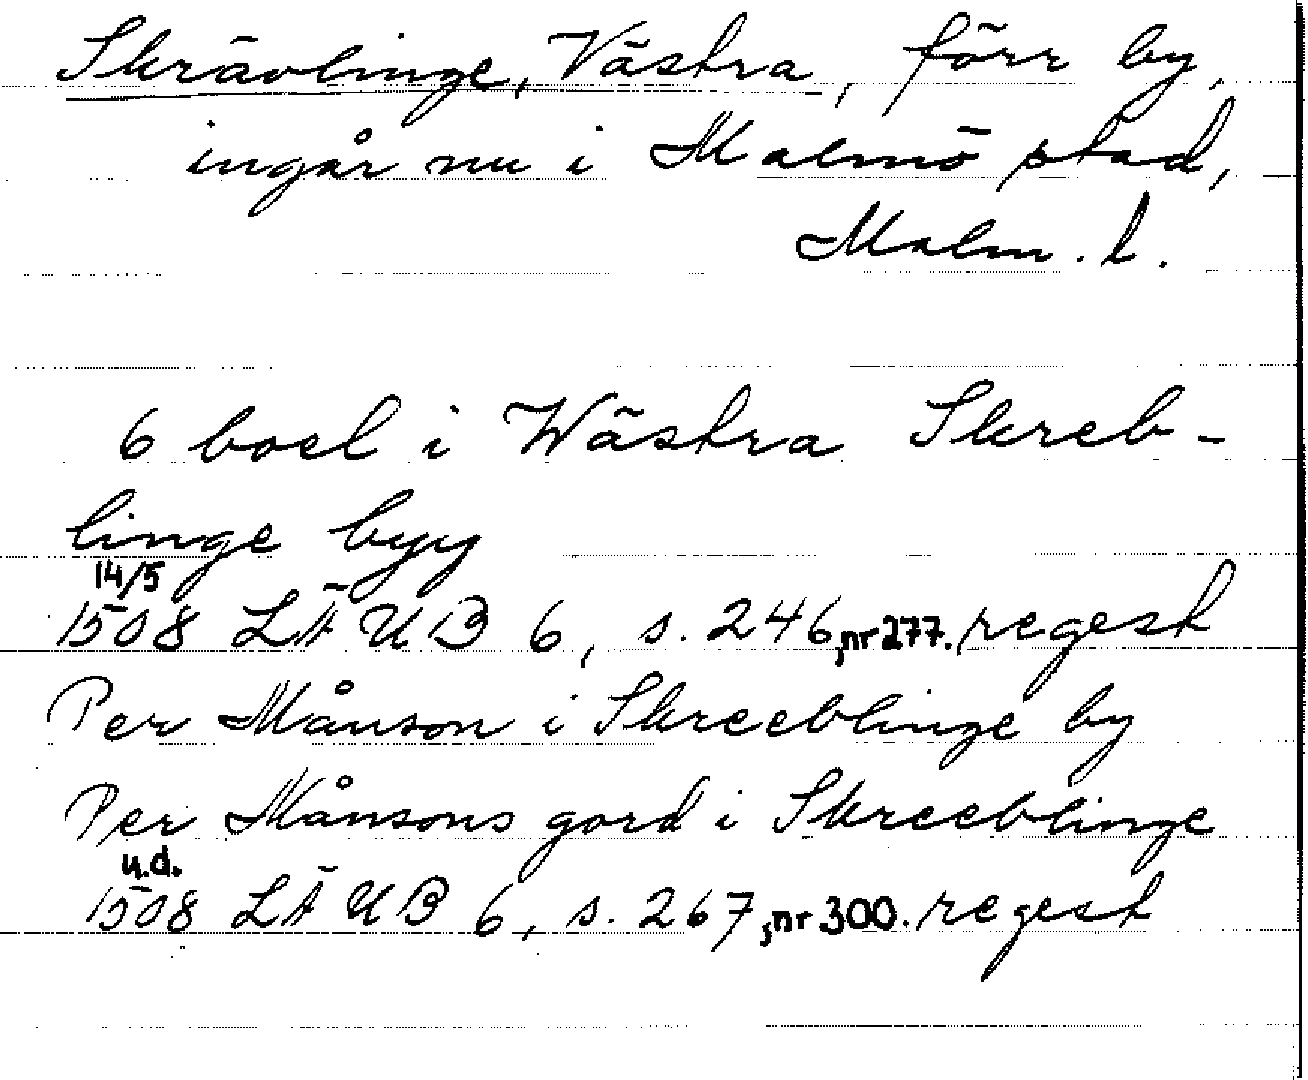 Skrävlinge, Västra, förr by,
ingår nu i Malmö stad,
Malm. l.
6 boel i Wästra Skreb-
linge byy
14/5
1508 LÄUB 6, s. 246, nr 277. regest
Per Månson i Skreeblinge by
Per Månsons gord i Skreeblinge
u.d.
1508 LÄUB 6, s. 267, nr 300. regest